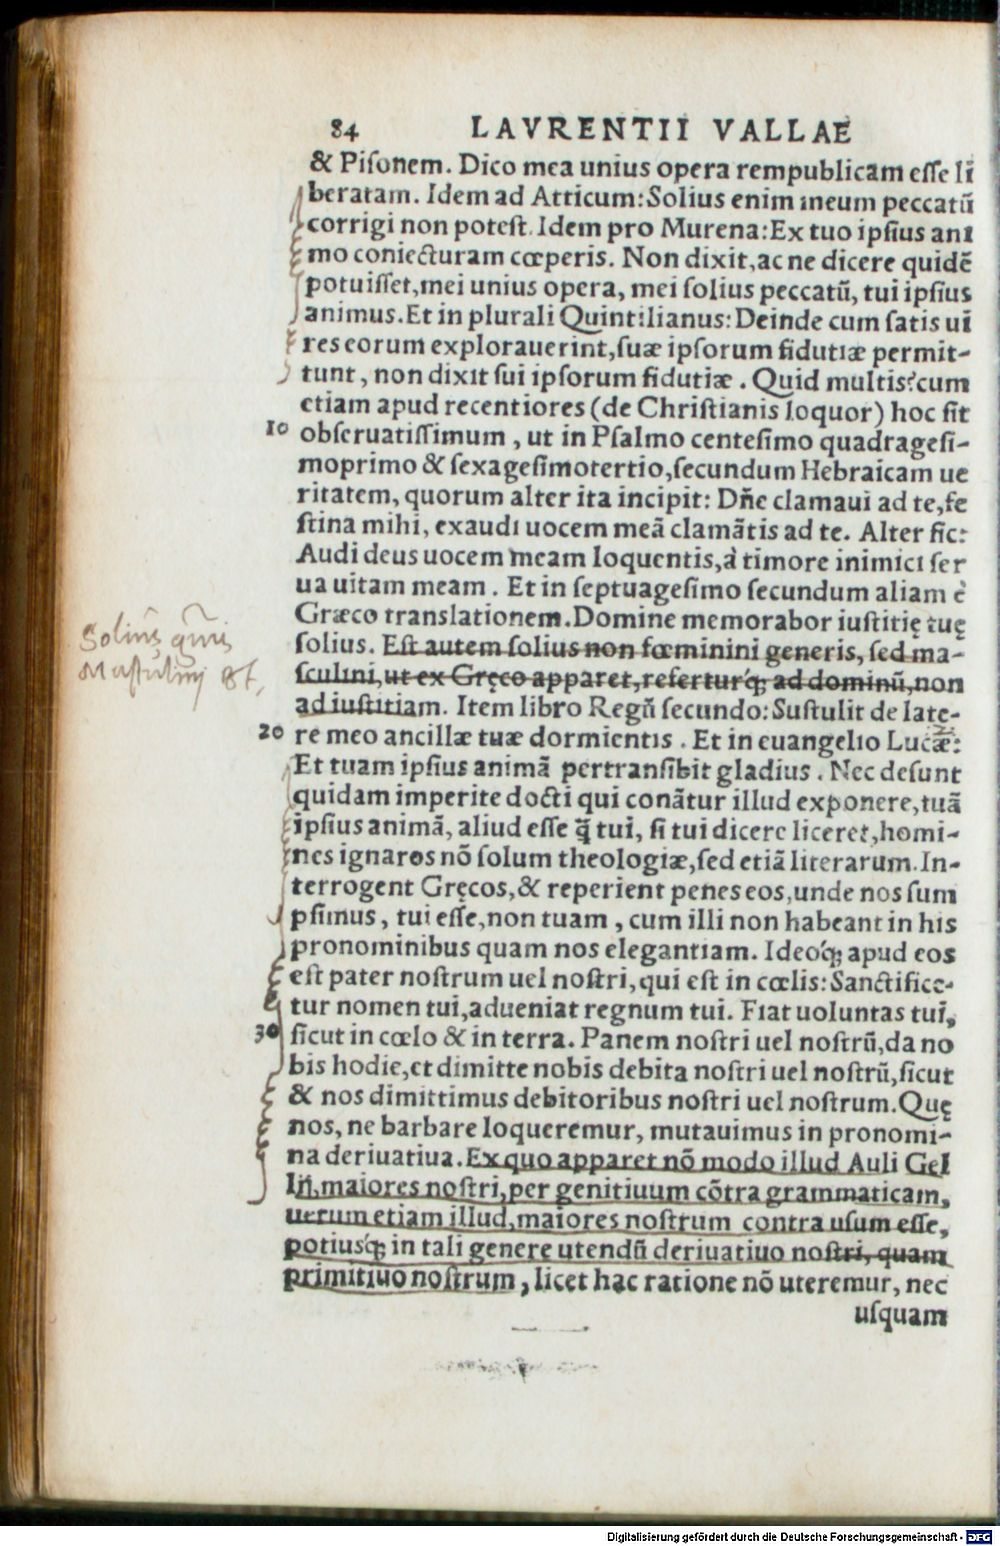 84 LAVRENTII VALLAE
& Piſonem. Dico mea unius opera rempublicam eſſe li
beratam. Idem ad Atticum: Solius enim meum peccatū
corrigi non poteſt. Idem pro Murena: Ex tuo ipſius ani
mo coniecturam cœperis. Non dixit, ac ne dicere quidē
potuiſſet, mei unius opera, mei ſolius peccatū, tui ipſius
animus. Et in plurali Quintilianus: Deinde cum ſatis ui
res eorum explorauerint, ſuæ ipſorum fidutiæ permit-
tunt, non dixit ſui ipſorum fidutiæ. Quid multis? cum
etiam apud recentiores (de Chriſtianis loquor) hoc ſit
10 obſeruatiſſimum, ut in Pſalmo centeſimo quadrageſi-
moprimo & ſexageſimotertio, ſecundum Hebraicam ue
ritatem, quorum alter ita incipit: Dñe clamaui ad te, fe
ſtina mihi, exaudi uocem meā clamātis ad te. Alter ſic:
Audi deus uocem meam loquentis, à timore inimici ſer
ua uitam meam. Et in ſeptuageſimo ſecundum aliam è
Græco translationem. Domine memorabor iuſtitię tuę
ſolius. Eſt autem ſolius non fœminini generis, ſed ma-
ſculini, ut ex Gręco apparet, reſerturq́; ad dominū, non
ad iuſtitiam. Item libro Regū ſecundo: Suſtulit de late-
20 re meo ancillæ tuæ dormientis. Et in euangelio Lucæ:
Et tuam ipſius animā pertranſibit gladius. Nec deſunt
quidam imperite docti qui conātur illud exponere, tuā
ipſius animā, aliud eſſe q̄ tui, ſi tui dicere liceret, homi-
nes ignaros nō ſolum theologiæ, ſed etiā literarum. In-
terrogent Gręcos, & reperient penes eos, unde nos ſum
pſimus, tui eſſe, non tuam, cum illi non habeant in his
pronominibus quam nos elegantiam. Ideoq́; apud eos
eſt pater noſtrum uel noſtri, qui eſt in cœlis: Sanctifice-
tur nomen tui, adueniat regnum tui. Fiat uoluntas tui,
30 ſicut in cœlo & in terra. Panem noſtri uel noſtrū, da no
bis hodie, et dimitte nobis debita noſtri uel noſtrū, ſicut
& nos dimittimus debitoribus noſtri uel noſtrum. Quę
nos, ne barbare loqueremur, mutauimus in pronomi-
na deriuatiua. Ex quo apparet nō modo illud Auli Gel
lij, maiores noſtri, per genitiuum cōtra grammaticam,
uerum etiam illud, maiores noſtrum contra uſum eſſe,
potiusq́; in tali genere utendū deriuatiuo noſtri, quam
primitiuo noſtrum, licet hac ratione nō uteremur, nec
uſquam
Solius
Digitalisierung gefördert durch die Deutsche Forschungsgemeinschaft - DFG